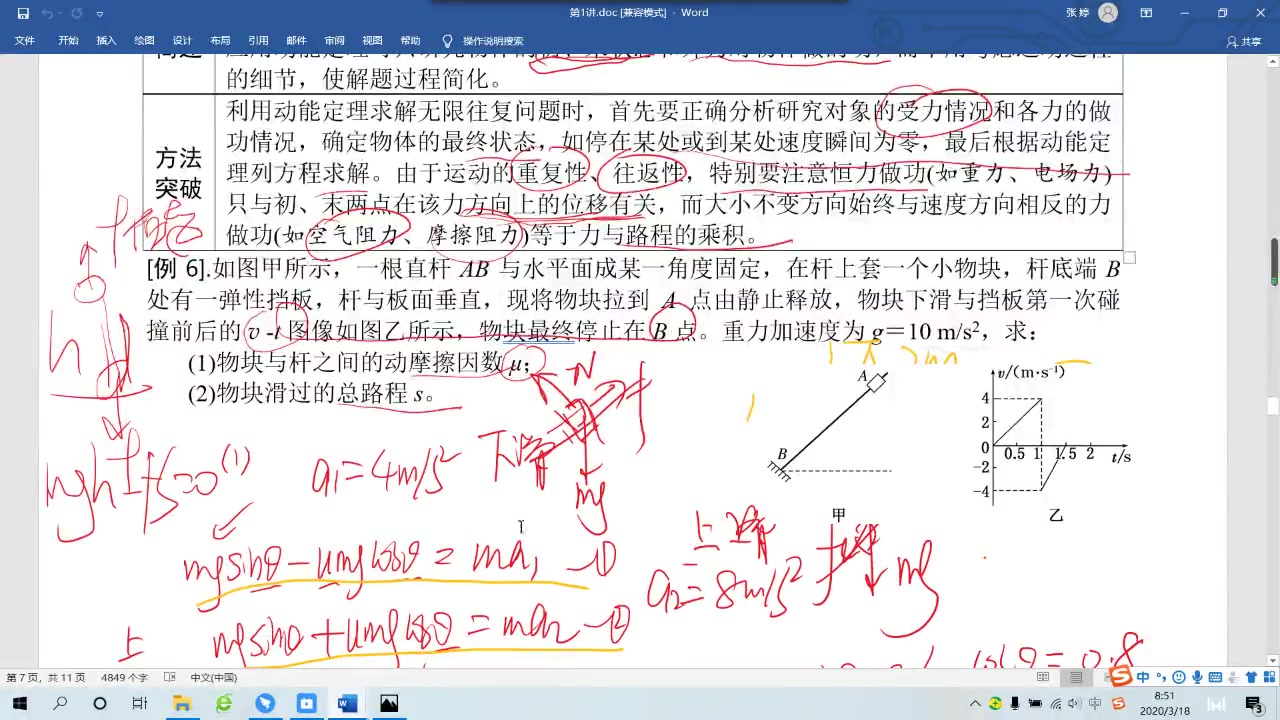 第1讲.doc [兼容模式] - Word
张 婷
文件 开始 插入 绘图 设计 布局 引用 邮件 审阅 视图 帮助 操作说明搜索 共享
的细节，使解题过程简化。
方法突破
利用动能定理求解无限往复问题时，首先要正确分析研究对象的受力情况和各力的做
功情况，确定物体的最终状态，如停在某处或到某处速度瞬间为零，最后根据动能定
理列方程求解。由于运动的重复性、往返性，特别要注意恒力做功(如重力、电场力)
只与初、末两点在该力方向上的位移有关，而大小不变方向始终与速度方向相反的力
做功(如空气阻力、摩擦阻力)等于力与路程的乘积。
[例 6].如图甲所示，一根直杆 AB 与水平面成某一角度固定，在杆上套一个小物块，杆底端 B
处有一弹性挡板，杆与板面垂直，现将物块拉到 A 点由静止释放，物块下滑与挡板第一次碰
撞前后的 v -t 图像如图乙所示，物块最终停止在 B 点。重力加速度为 g＝10 m/s²，求：
(1)物块与杆之间的动摩擦因数 μ；
(2)物块滑过的总路程 s。
A
B
甲
v/(m·s⁻¹)
4
2
0
-2
-4
0.5 1 1.5 2
t/s
乙
h
N
mg
下滑
(1) a₁=4m/s²
上滑
a₂=8m/s²
mg
mgsinθ-umgcosθ=ma₁ -①
上 mgsinθ+umgcosθ=ma₂ -②
cosθ=0.8
第 7 页，共 11 页 4849 个字 中文(中国)
中
8:51
2020/3/18
3